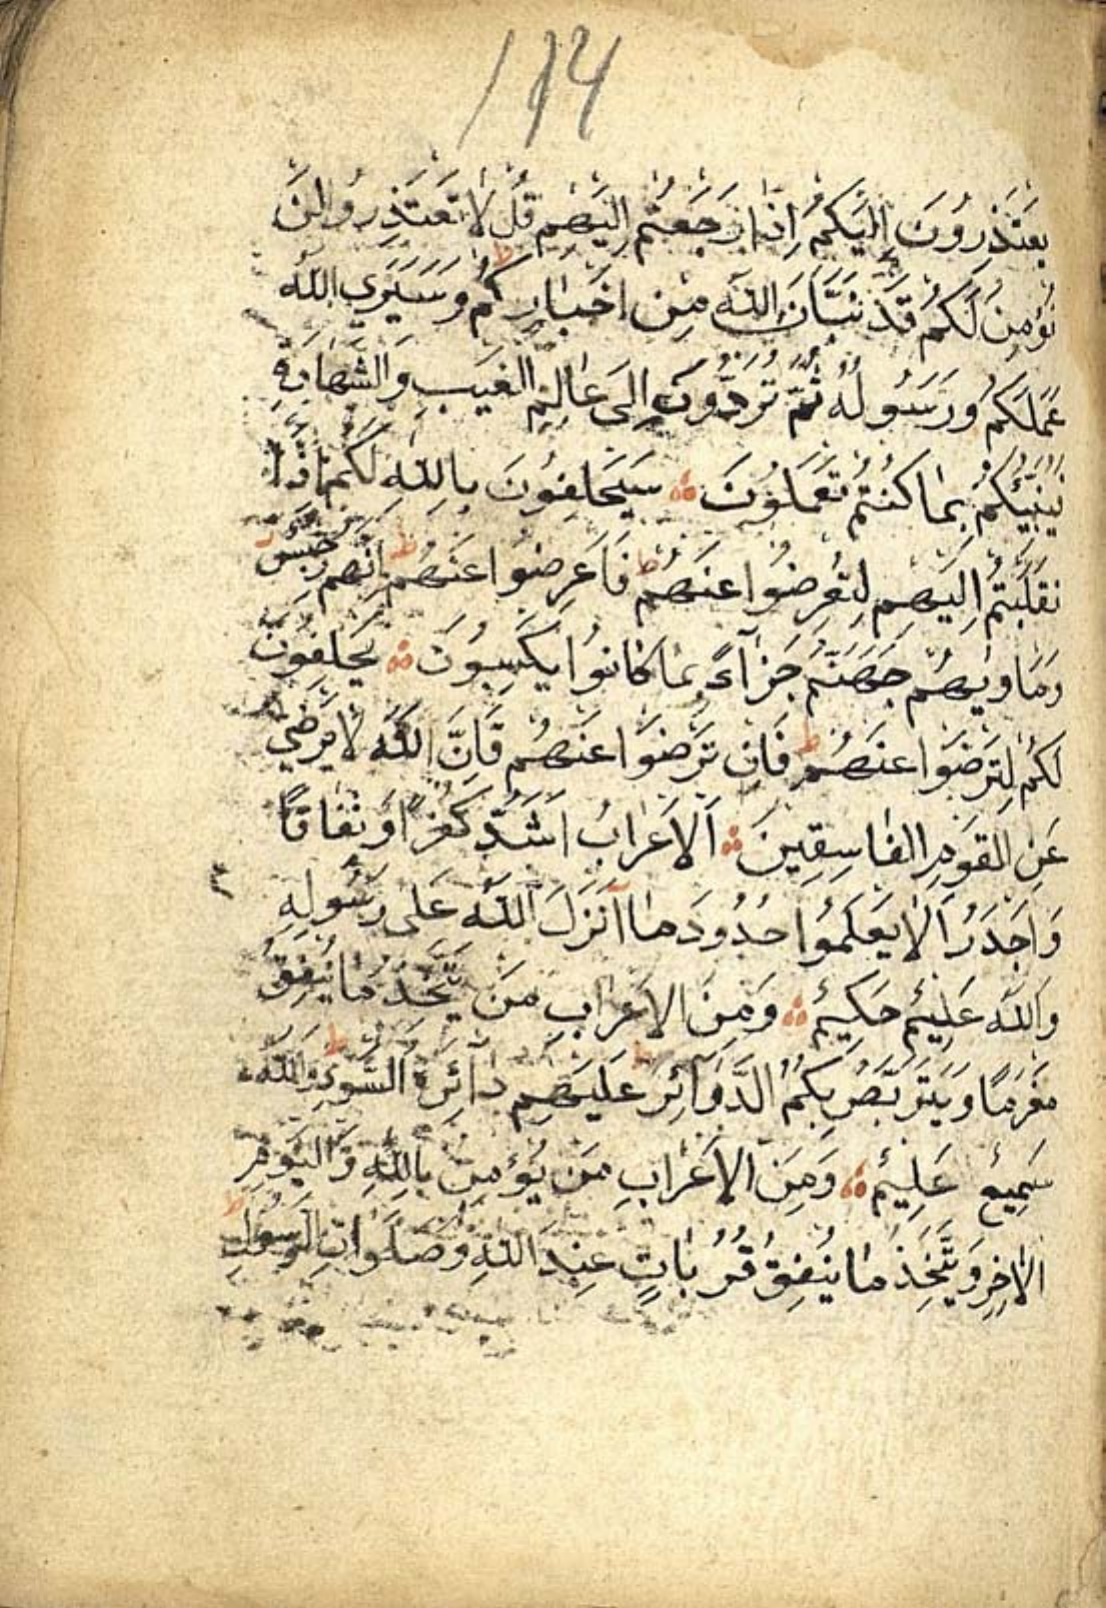 114
يَعْتَذِرُونَ إِلَيْكُمْ إِذَا رَجَعْتُمْ إِلَيْهِمْ قُلْ لَا تَعْتَذِرُوا لَنْ
نُؤْمِنَ لَكُمْ قَدْ نَبَّأَنَا اللَّهُ مِنْ أَخْبَارِكُمْ ط وَسَيَرَى اللَّهُ
عَمَلَكُمْ وَرَسُولُهُ ثُمَّ تُرَدُّونَ إِلَى عَالِمِ الْغَيْبِ وَالشَّهَادَةِ
فَيُنَبِّئُكُمْ بِمَا كُنْتُمْ تَعْمَلُونَ ۞ سَيَحْلِفُونَ بِاللَّهِ لَكُمْ إِذَا
نْقَلَبْتُمْ إِلَيْهِمْ لِتُعْرِضُوا عَنْهُمْ ط فَأَعْرِضُوا عَنْهُمْ ط إِنَّهُمْ رِجْسٌ
وَمَأْوٰيهُمْ جَهَنَّمُ جَزَاءً بِمَا كَانُوا يَكْسِبُونَ ۞ يَحْلِفُونَ
لَكُمْ لِتَرْضَوْا عَنْهُمْ ط فَإِنْ تَرْضَوْا عَنْهُمْ فَإِنَّ اللَّهَ لَا يَرْضٰى
عَنِ الْقَوْمِ الْفَاسِقِينَ ۞ اَلْأَعْرَابُ أَشَدُّ كُفْرًا وَنِفَاقًا
وَأَجْدَرُ أَلَّا يَعْلَمُوا حُدُودَ مَا أَنْزَلَ اللَّهُ عَلَى رَسُولِهِ
وَاللَّهُ عَلِيمٌ حَكِيمٌ ۞ وَمِنَ الْأَعْرَابِ مَنْ يَتَّخِذُ مَا يُنْفِقُ
مَغْرَمًا وَيَتَرَبَّصُ بِكُمُ الدَّوَائِرَ ط عَلَيْهِمْ دَائِرَةُ السَّوْءِ ط وَاللَّهُ
سَمِيعٌ عَلِيمٌ ۞ وَمِنَ الْأَعْرَابِ مَنْ يُؤْمِنُ بِاللَّهِ وَالْيَوْمِ
الْآخِرِ وَيَتَّخِذُ مَا يُنْفِقُ قُرُبَاتٍ عِنْدَ اللَّهِ وَصَلَوَاتِ الرَّسُولِ ط